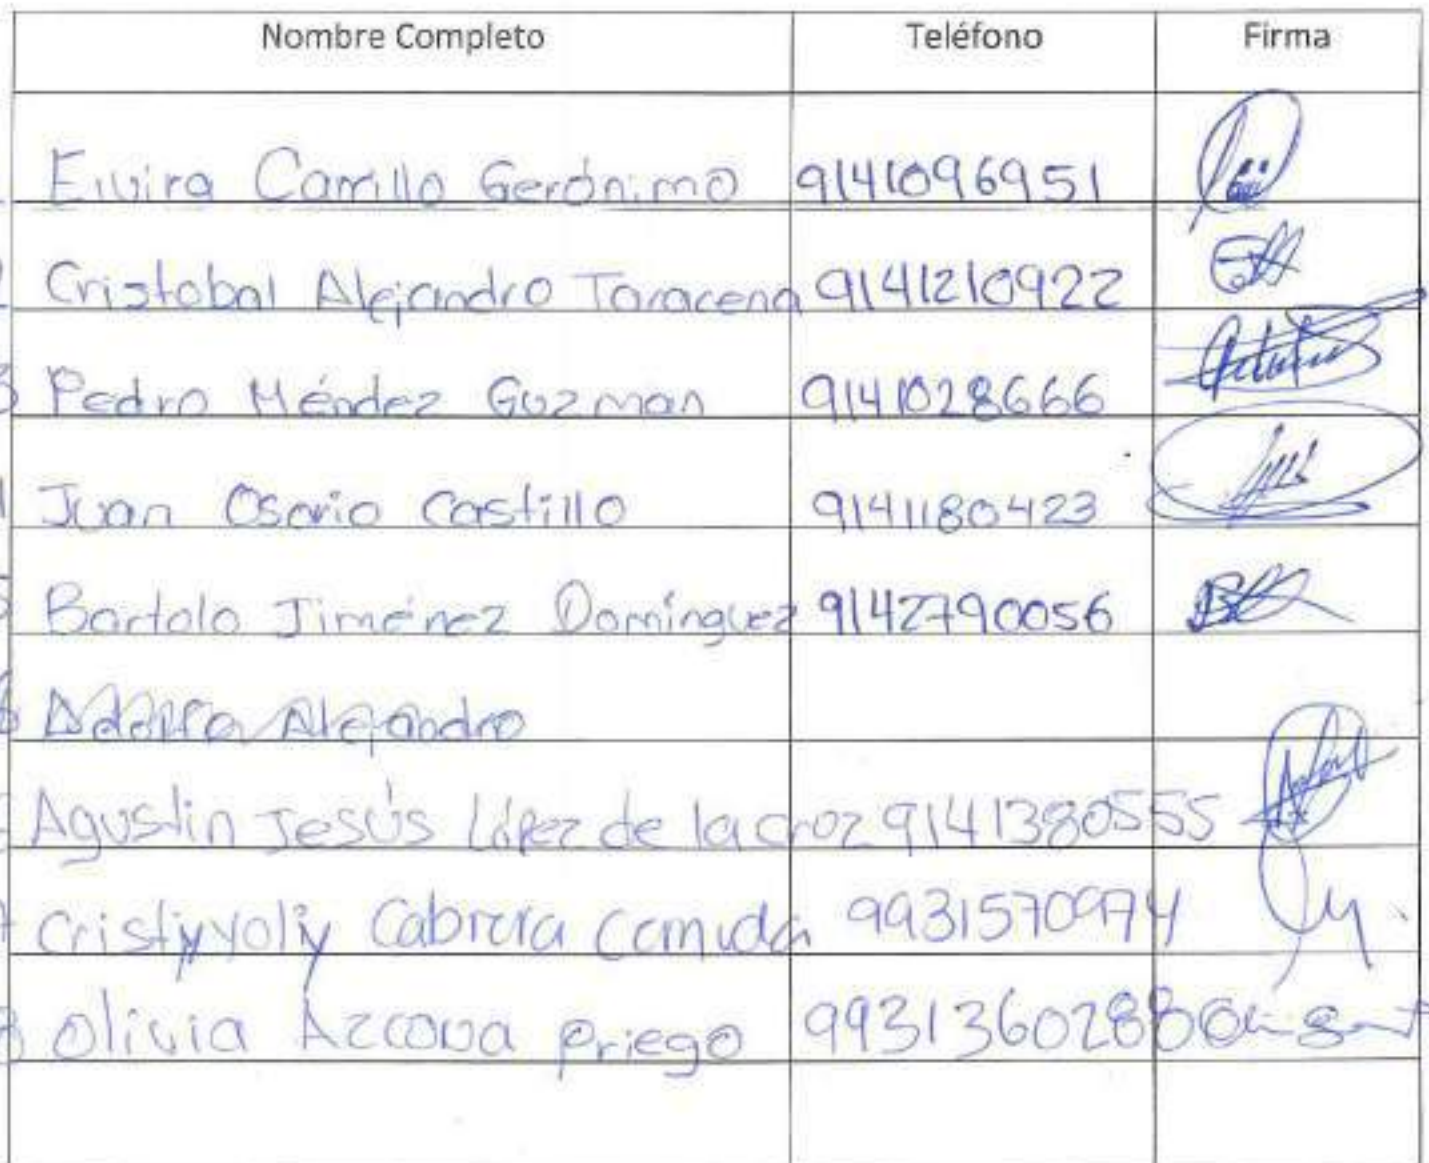 Nombre Completo Teléfono Firma
Elvira Carrillo Gerónimo 9141096951
2 Cristobal Alejandro Taracena 9141210922
3 Pedro Méndez Guzman 9141028666
4 Juan Osorio Castillo 9141180423
5 Bartolo Jiménez Domínguez 9142790056
6 Adolfo Alejandro
Agustin Jesús López de la Croz 9141380555
7 Cabrera 9931570974
8 Olivia Azcova Priego 9931360288